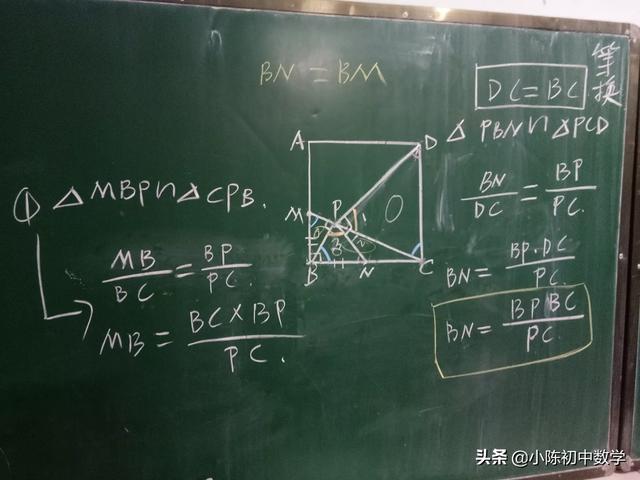 BN = BM
等换
DC = BC
△PBN∽△PCD
BN/DC = BP/PC.
BN = BP·DC/PC.
BN = BP BC/PC.
① △MBP∽△CPB.
MB/BC = BP/PC.
MB = BC×BP/PC.
A
D
M
P
1
2
3
B
N
C
头条 @小陈初中数学